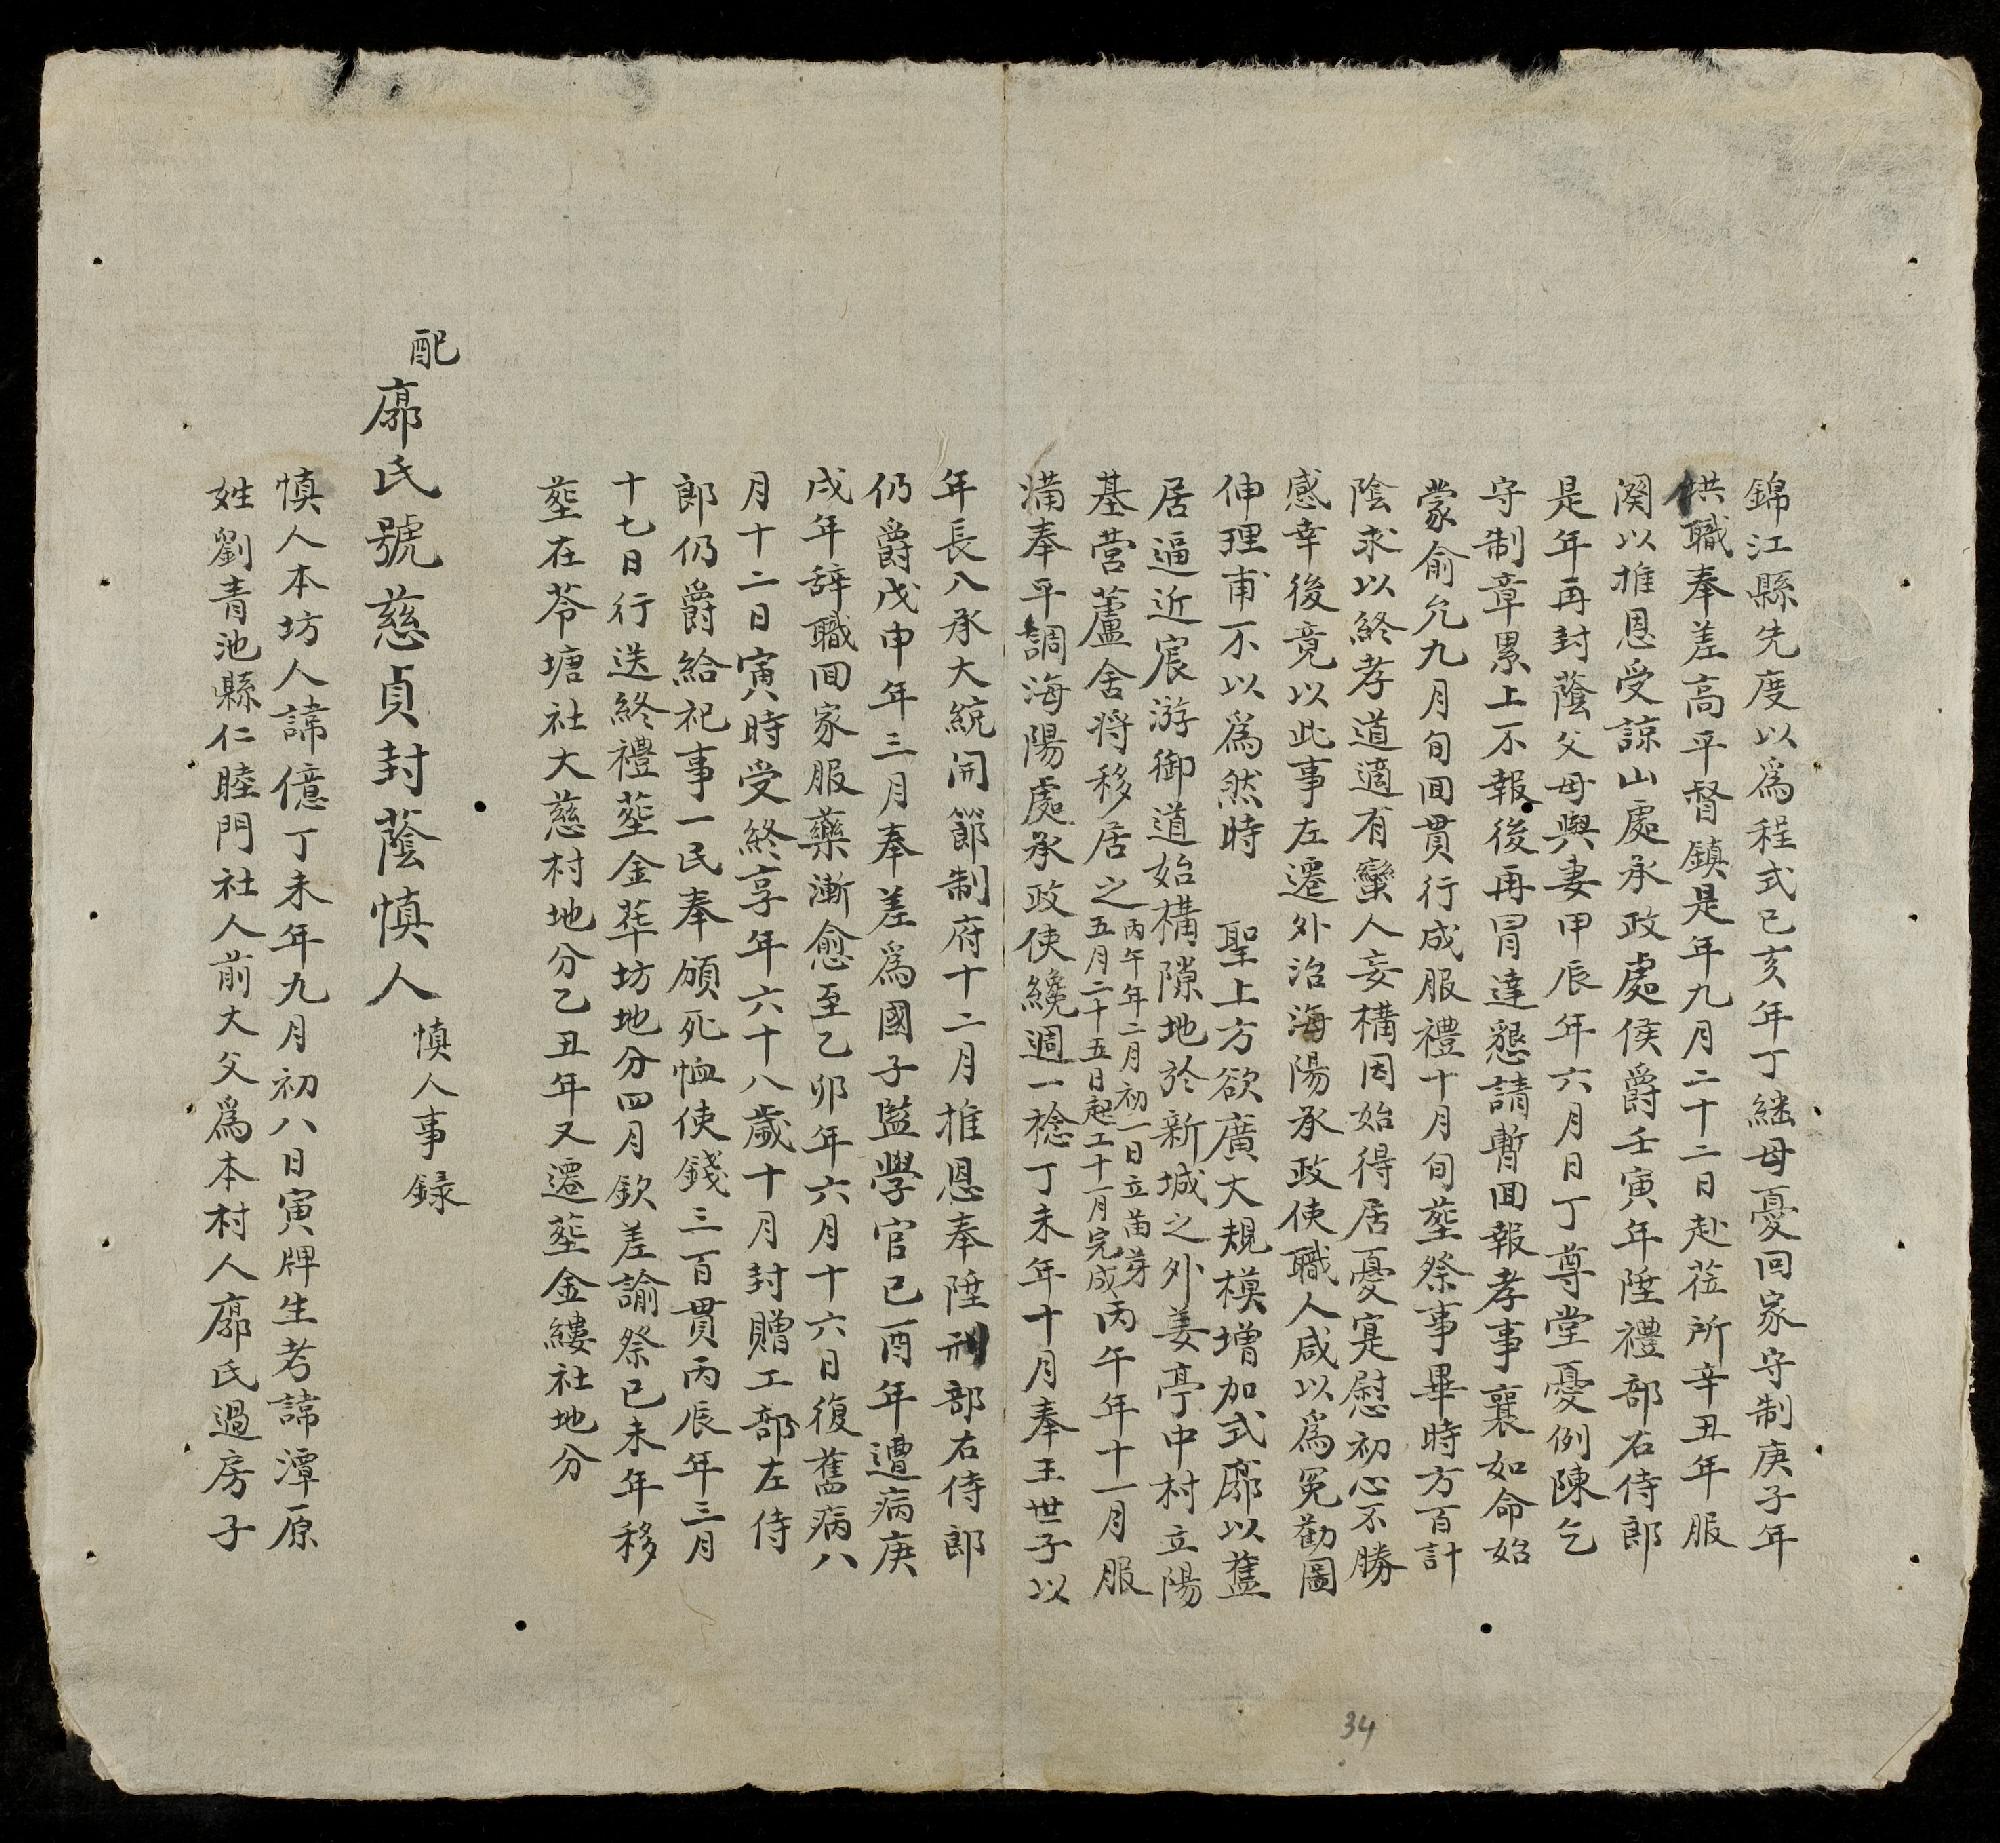 錦江縣先度以爲程式已亥年丁継母憂回家守制庚子年
供職奉差高平督鎮是年九月二十二日赴莅所辛丑年服
闋以推恩受諒山處承政處侯爵壬寅年陞禮部右侍郎
是年再封蔭父母與妻甲辰年六月日丁尊堂憂例陳乞
守制章累上不報後再冒達懇請暫回報孝事襄如命始
蒙俞允九月旬回貫行成服禮十月旬塟祭事畢時方百計
陰求以終孝道適有蠻人妄構因始得居憂寔慰初心不勝
感幸後竟以此事左遷外治海陽承政使職人咸以爲冤勸圖
伸理甫不以爲然時 聖上方欲廣大規模增加式廓以舊
居逼近宸游御道始構隙地於新城之外姜亭中村立陽
基营蘆舍将移居之丙午年二月初一日立苗芽五月二十五日起工十一月完成丙午年十一月服
满奉平調海陽處承政使纔週一稔丁未年十月奉王世子以
年長入承大統開節制府十二月推恩奉陞刑部右侍郎
仍爵戊申年三月奉差爲國子監學官已酉年遭病庚
戌年辞職回家服藥漸愈至乙卯年六月十六日復舊病八
月十二日寅時受終享年六十八歲十月封贈工部左侍
郎仍爵給祀事一民奉頒死恤使錢三百貫丙辰年三月
十七日行送終禮塟金華坊地分四月欽差諭祭已未年移
塟在苓塘社大慈村地分乙丑年又遷塟金縷社地分
配廓氏號慈貞封蔭慎人 慎人事録
慎人本坊人諱億丁未年九月初八日寅牌生考諱潭原
姓劉青池縣仁睦門社人前大父爲本村人廓氏過房子
34